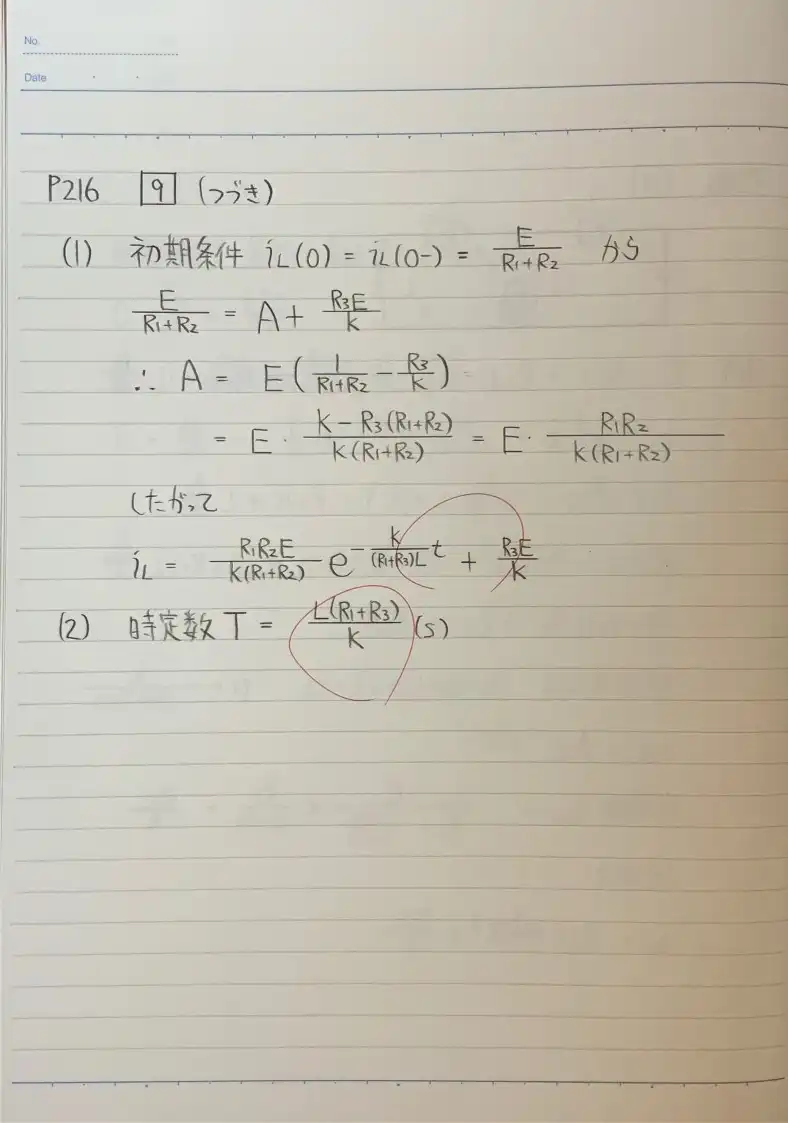 No.
Date
P216 9 (つづき)
(1) 初期条件 iL(0) = iL(0-) = E/(R1+R2) から
E/(R1+R2) = A + R3E/k
∴ A = E(1/(R1+R2) - R3/k)
= E · (k - R3(R1+R2))/(k(R1+R2)) = E · R1R2/(k(R1+R2))
したがって
iL = R1R2E/(k(R1+R2)) e^(-k/((R1+R3)L) t) + R3E/k
(2) 時定数 T = L(R1+R3)/k (s)